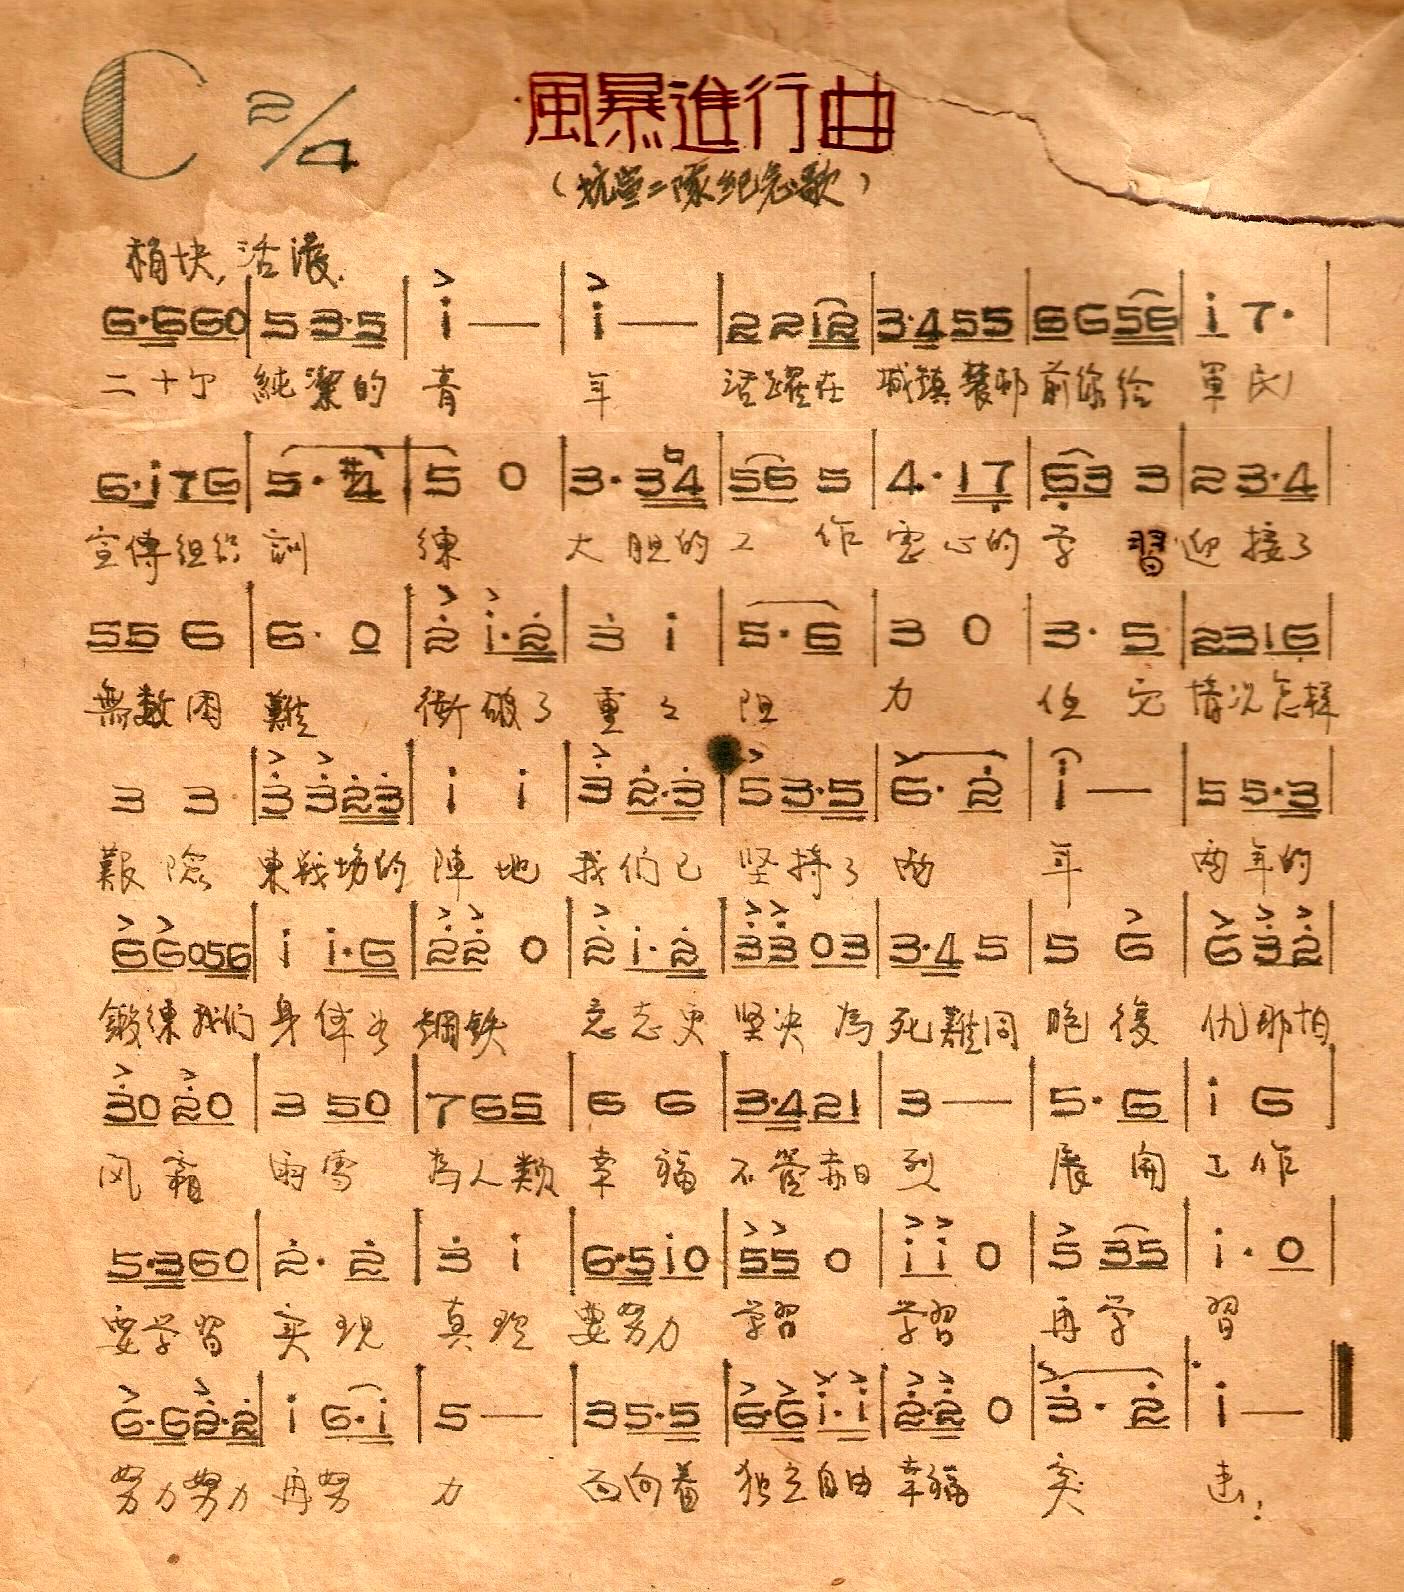 C 2/4
風暴進行曲
(抗宣二隊纪念歌)
稍快,活潑.
6·5 6 0 | 5 3·5 | i — | i — | 2 2 1 2 | 3·4 5 5 | 6 6 5 6 | i 7· |
二十个 純潔的 青 年 活躍在 城鎮 前線给 軍民
6·i 7 6 | 5·#4 | 5 0 | 3·3 4 | 5 6 5 | 4·1 7 | 6 3 3 | 2 3·4 |
宣傳组织 訓 練 大胆的 工作 虚心的 学習 迎接了
5 5 6 | 6·0 | 2 i·2 | 3 i | 5·6 | 3 0 | 3·5 | 2 3 1 6 |
無数困 難 衝破了 重々 阻 力 任它 情况怎样
3 3 | 3 3 2 3 | i i | 3 2·3 | 5 3·5 | 6·2 | i — | 5 5·3 |
艱險 東战场的 陣地 我们已 坚持了 两 年 两年的
6 6 0 5 6 | i i·6 | 2 2 0 | 2 i·2 | 3 3 0 3 | 3·4 5 | 5 6 | 6 3 2 |
鍛練我们 身体为 鋼铁 意志更 坚决为 死難同 胞復 仇那怕
3 0 2 0 | 3 5 0 | 7 6 5 | 6 6 | 3·4 2 1 | 3 — | 5·6 | i 6 |
风霜 雨雪 为人類 幸福 不管赤日 烈 展開 工作
5·3 6 0 | 2·2 | 3 i | 6·5 i 0 | 5 5 0 | i i 0 | 5 3 5 | i·0 |
要学習 实现 真理 要努力 学習 学習 再学 習
6·6 2·2 | i 6·i | 5 — | 3 5·5 | 6·6 i·i | 2·2 0 | 3·2 | i — |
努力努力 再努 力 面向着 独立自由 幸福 突 击!